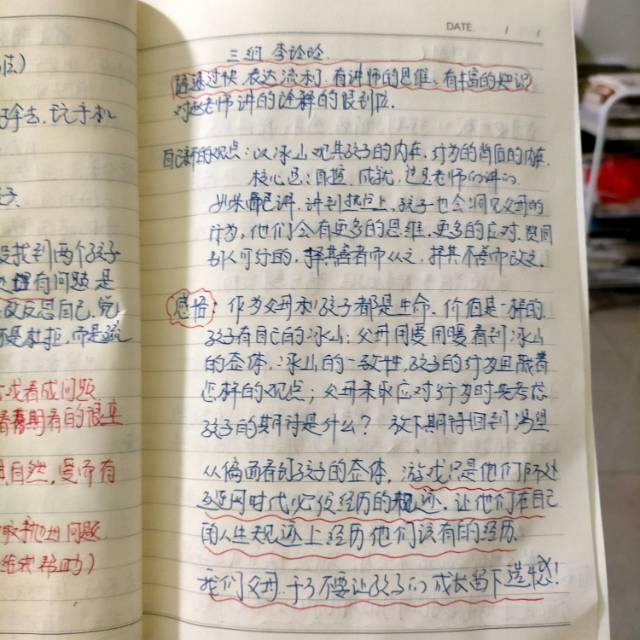 DATE / /
三组 李玲玲
语速过快 表达流利 有讲师的思维、有丰富的知识
对老师讲的诠释的很到位.
自己新的观点：以冰山观其孩子的内在，行为的背后的内在
核心是：自控、成就，这是老师的讲的.
如果画已讲，讲到热点上，孩子也会洞见父母的
行为，他们会有更多的思维、更多的应对，跟同
别人同行的，择其善者而从之，择其不善而改之。
感悟：作为父母和孩子都是生命，价值是一样的
孩子有自己的冰山；父母用爱用暖看到冰山
的整体，冰山的一致性，孩子的行为里藏着
怎样的观点；父母采取应对行为时先考虑
孩子的期待是什么？放下期待回到渴望
从偏面看到孩子的整体，游戏只是他们所处
互联网时代必须经历的规迹，让他们在自己
的人生规迹上经历他们该有的经历.
我们父母千万不要让孩子们成长留下遗憾！
除去、玩手机
没找到两个孩子
有问题 是
反思自己，
而是
或看成问题
看有的很重
自然，爱而有
问题
给我帮助)